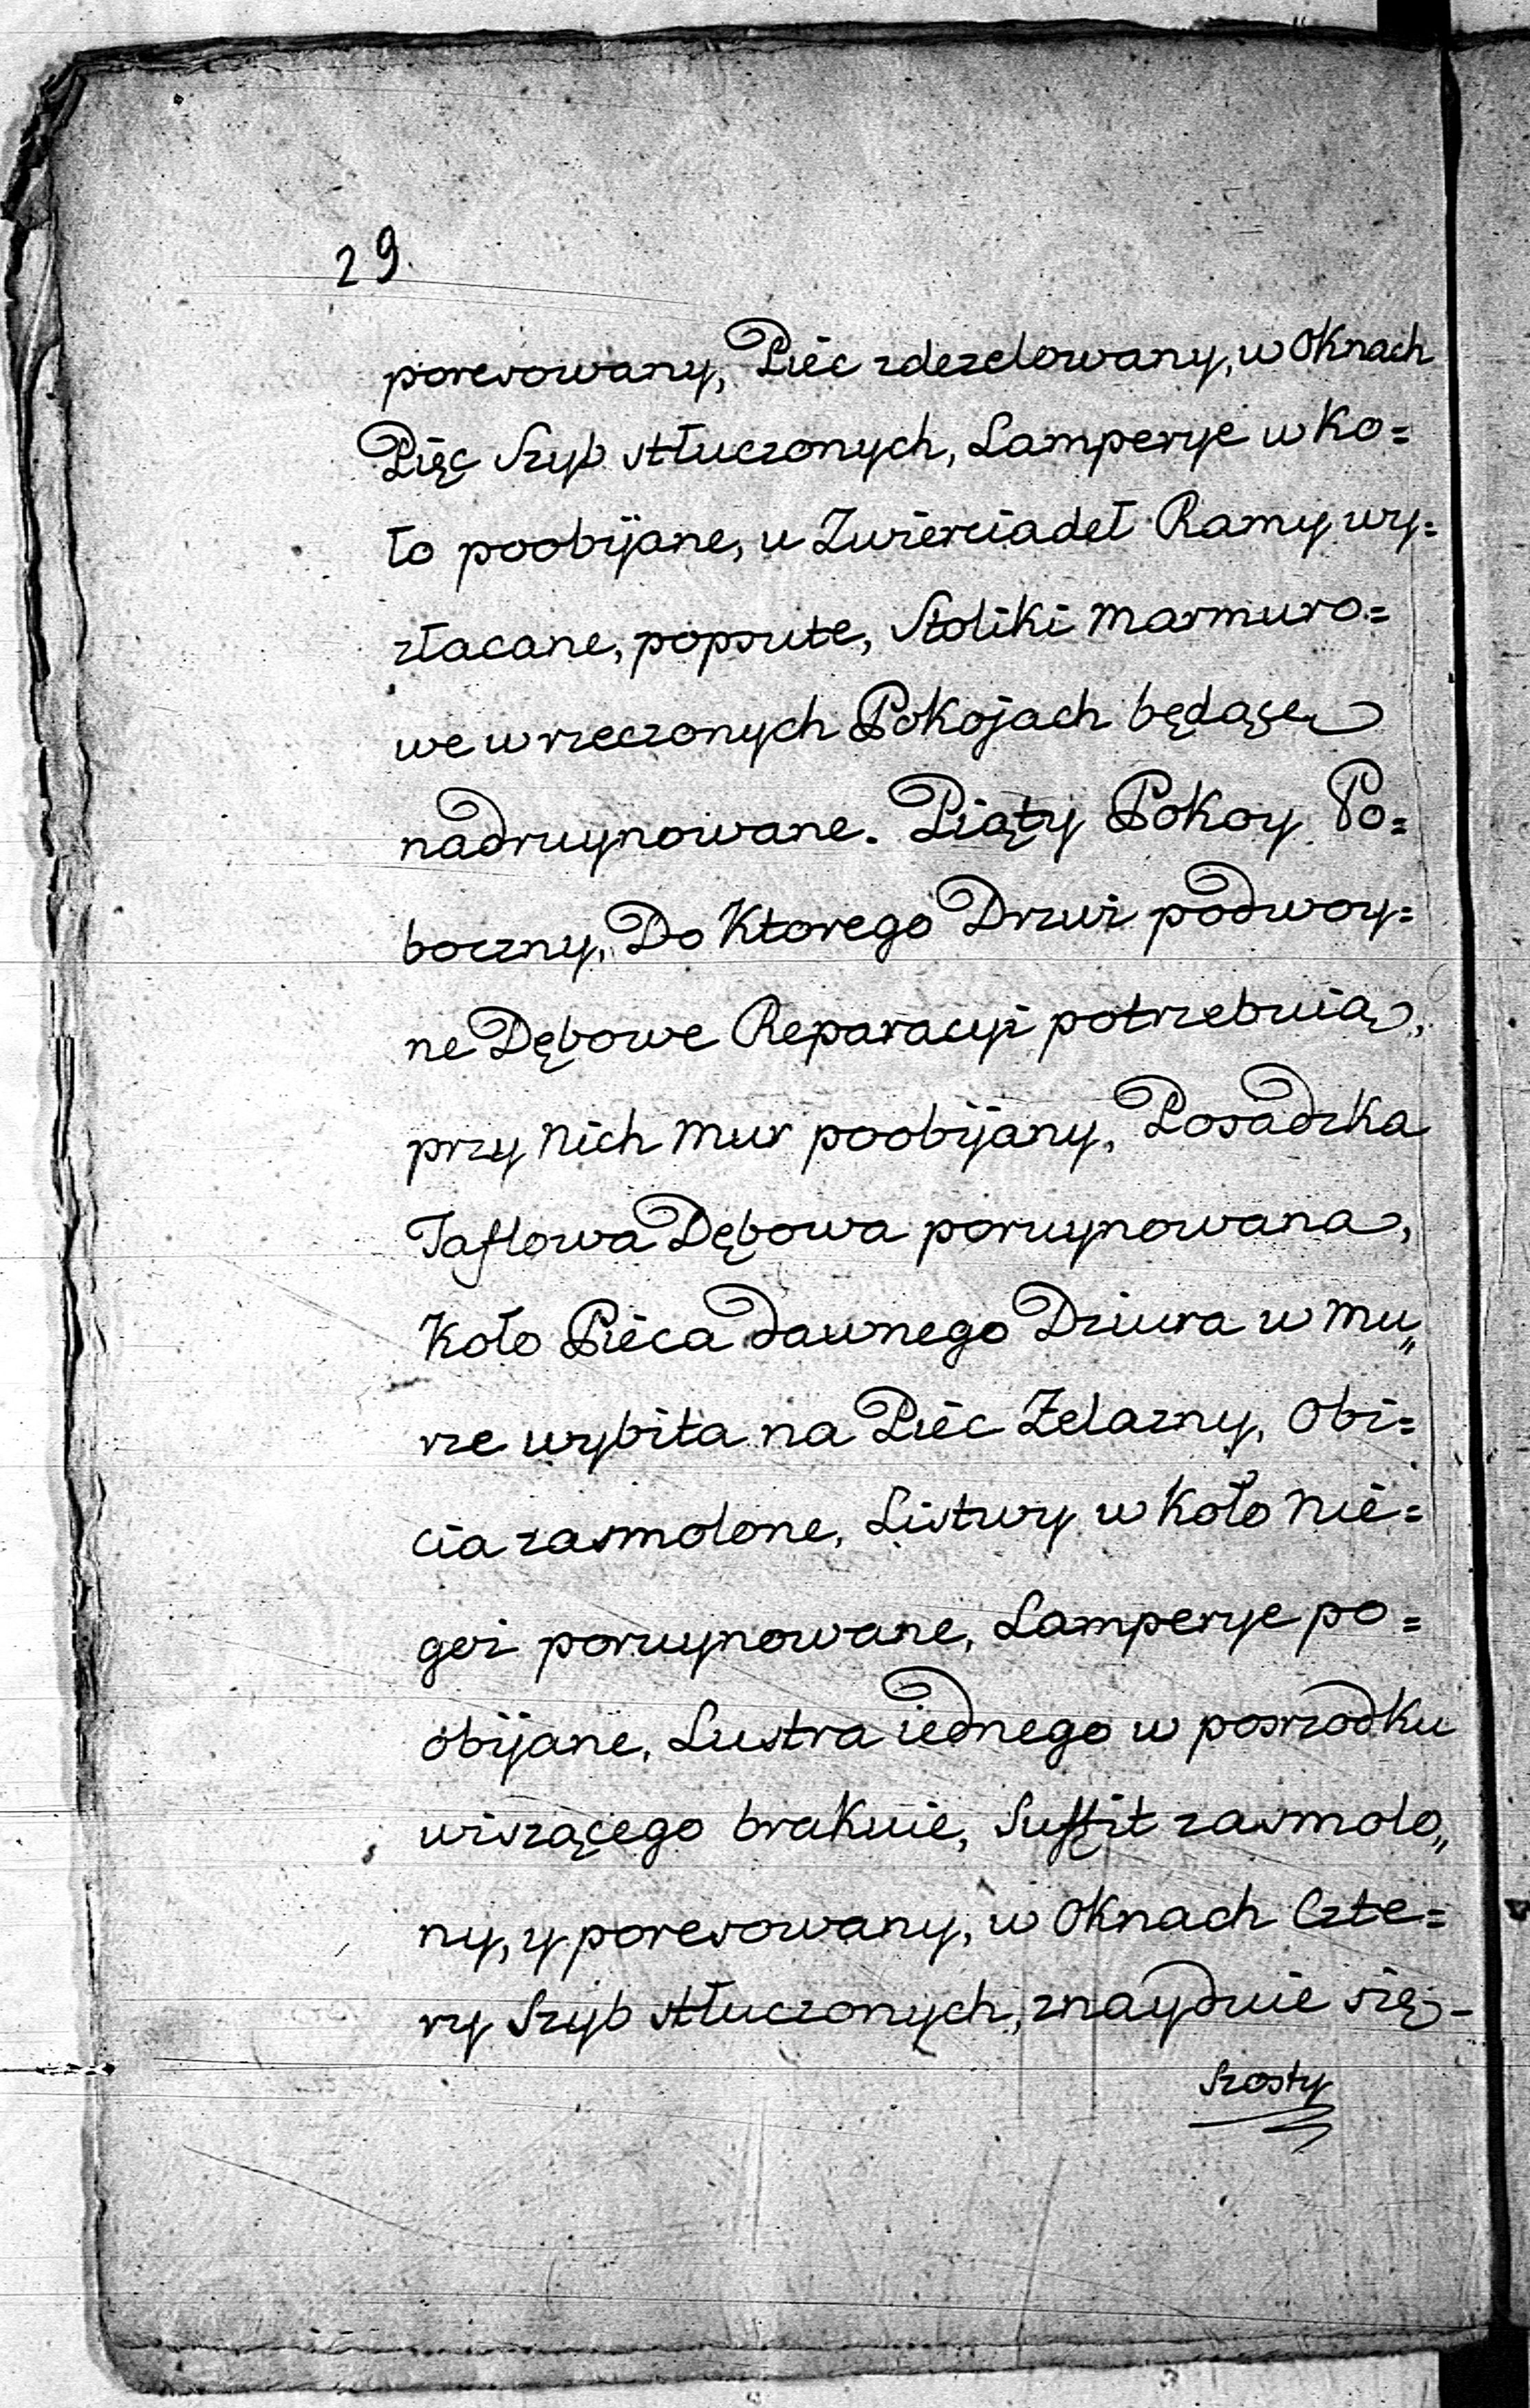 29.
poresowany, Piéc zdezelowany, w Oknach
Pięc Szyb stłuczonych, Lamperye w Ko=
ło poobijane, u Zwierciadeł Ramy wy=
złacane, popsute, Stoliki Marmuro=
we w rzeczonych Pokojach będące
nadruynowane. Piąty Pokoy Po=
boczny, Do Ktorego Drzwi podwoy=
ne Dębowe Reparacyi potrzebuią,
przy Nich Mur poobijany, Posadzka
Taflowa Dębowa poruynowana,
Koło Piéca dawnego Dziura w Mu„
rze wybita na Piéc Zelazny, Obi=
cia zasmolone, Listwy w Koło Nie=
goż poruynowane, Lamperye po=
obijane, Lustra iednego w posrzodku
wiszącego brakuie, Suffit zasmolo„
ny, y poresowany, w Oknach Czte=
ry Szyb stłuczonych, znayduie się,-
Szosty